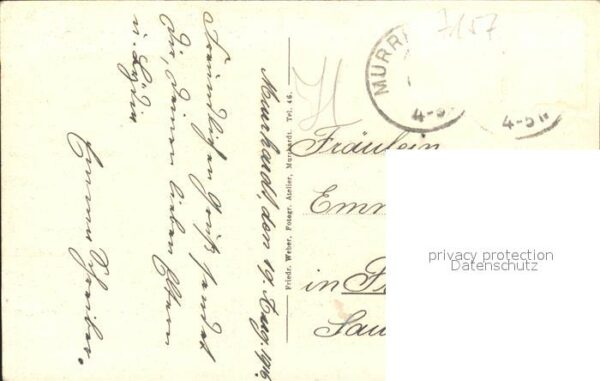 Murrhardt, den 19. Aug. 1916
Freundlichen Gruß sendet
Dir, Deinen lieben Eltern
u.
Emma Schreiber.
Friedr. Weber, Fotogr. Atelier, Murrhardt. Tel. 46.
7157
MURR
4-5
4-5N
Fräulein
Emm
in
Sau
privacy protection
Datenschutz